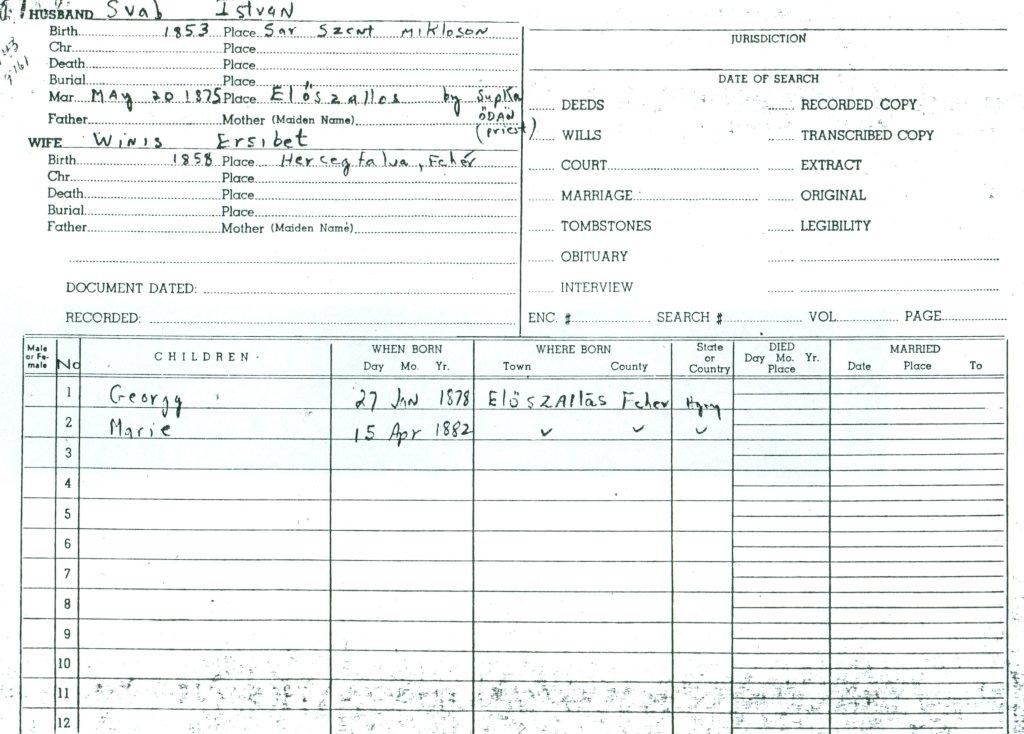 HUSBAND Svab Istvan
Birth 1853 Place Sar Szent Mikloson
Chr. Place
Death Place
Burial Place
Mar. MAY 20 1875 Place Előszallos by Supka
ÖDÄN
Father Mother (Maiden Name) (priest)
WIFE Winis Ersibet
Birth 1858 Place Hercegfalva, Fehér
Chr. Place
Death Place
Burial Place
Father Mother (Maiden Name)
DOCUMENT DATED:
RECORDED:
JURISDICTION
DATE OF SEARCH
DEEDS RECORDED COPY
WILLS TRANSCRIBED COPY
COURT EXTRACT
MARRIAGE ORIGINAL
TOMBSTONES LEGIBILITY
OBITUARY
INTERVIEW
ENC. # SEARCH # VOL. PAGE
Male or Fe-male No CHILDREN WHEN BORN Day Mo. Yr. WHERE BORN Town County State or Country DIED Day Mo. Yr. Place MARRIED Date Place To
1 Georgy 27 Jan 1878 Előszállás Feher Hgny
2 Marie 15 Apr 1882 ✓ ✓ ✓
3
4
5
6
7
8
9
10
11
12